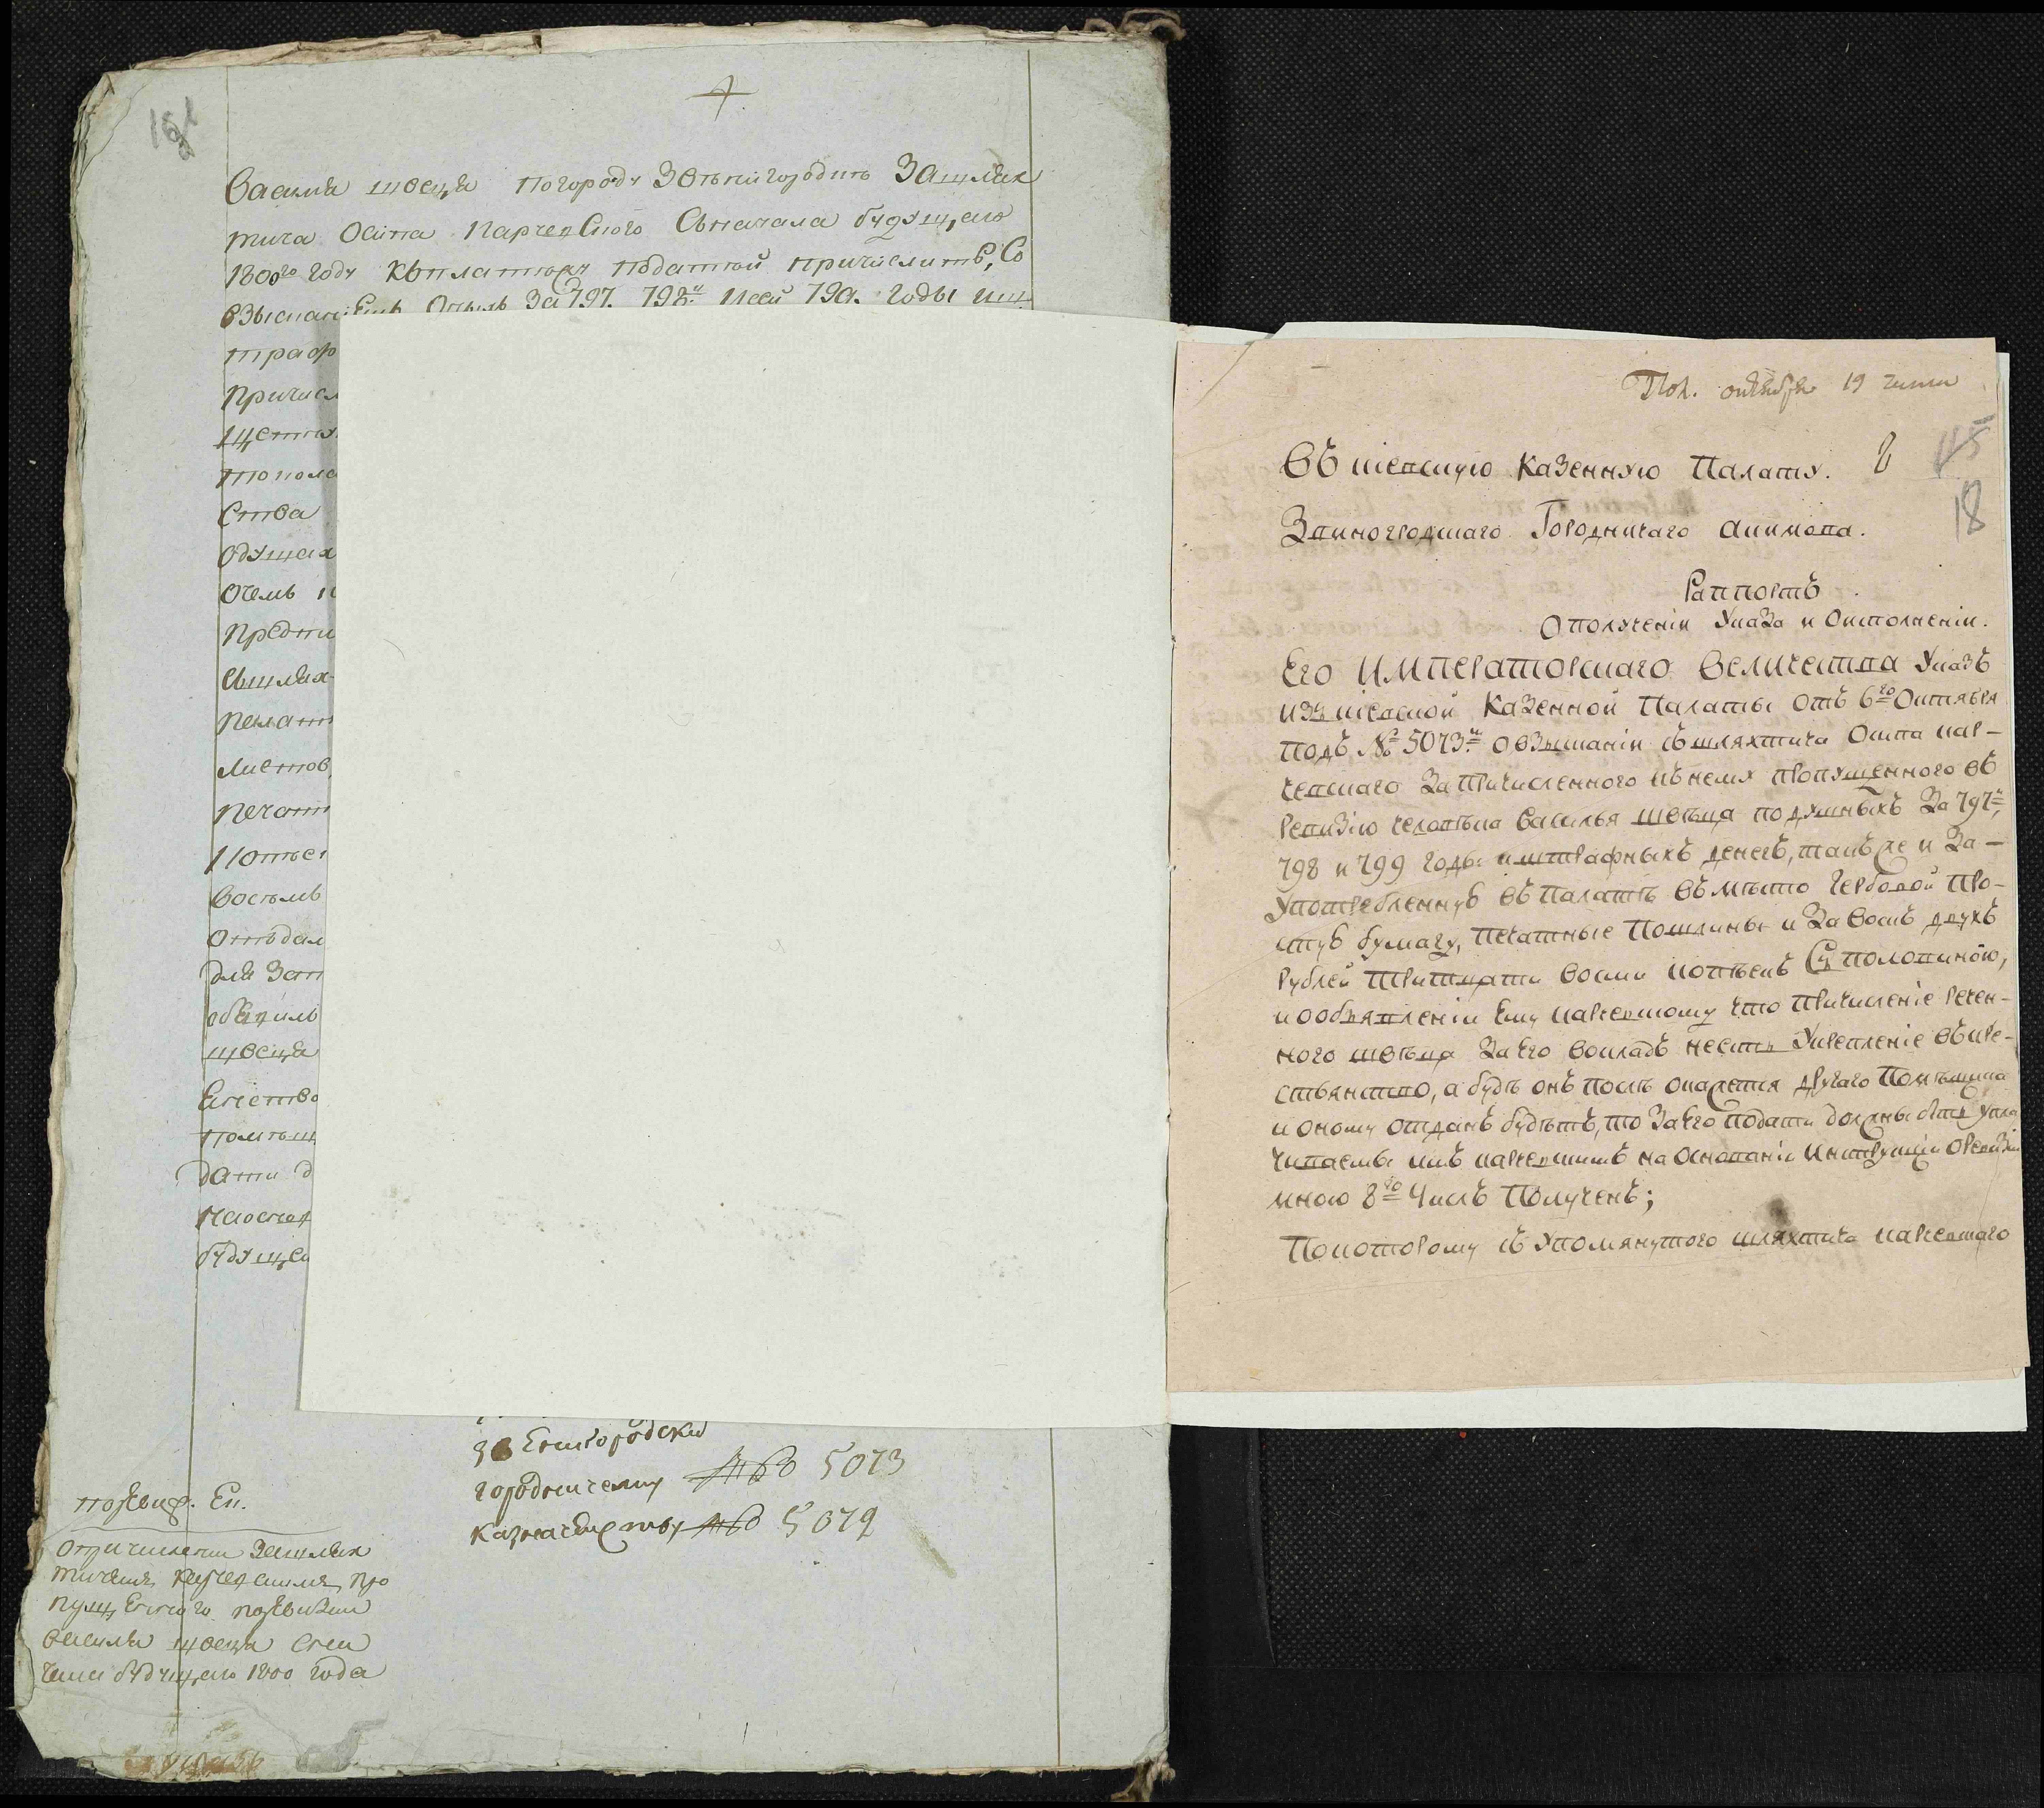 Васила швеца погороду Звенигородкъ Зашлях
тича Осипа Карчевского Сначала будущаго
1800го году Къплатежу податей причислить, Со
взысканиемъ Окладъ За 797. 798.й Исей 799. годы иш
траф
Причисл
тополо
Ства
одушах
Очемъ
Предпи
Сышлях
Печат
листов,
печатн
Копъек
восемь
Отъдал
Для Зап
объявилъ
швеца
помещ
дати д
будуще
Звенигородски
городничему № 5073
казначейству № 5072
поревиз. Ек.
Опричислении Зашлях
тичемъ Карчевскимъ про
пущенного поревизии
Василя швеца Сна
чала будущаго 1800 года
Пол. октября 19 числа
Въ Кіевскую Казенную Палату. 8
45
18
Звиногродскаго Городничаго Акимова.
Раппортъ
Ополученіи Указа и Оисполненіи.
Его Императорскаго Величества Указъ
изъ Кіевской Казенной Палаты отъ 6го Октября
подъ № 5073.м овзысканіи съ шляхтича Осипа Кар-
чевскаго За причисленного къ нему пропущенного въ
ревизію человѣка Василья швеца подушныхъ За 797й,
798 и 799 годы и штрафныхъ денегъ, такъ же и За-
употребленную въ Палатѣ въ мѣсто гербовой про-
стую бумагу, печатные пошлины и За воскъ двухъ
рублей тритцати восми копѣекъ Съ половиною,
и о объявленіи Ему Карчевскому что причисленіе речен-
ного швеца За Его вокладъ несть Укрепленіе въ кре-
стьянство, а будѣ онъ послѣ окажетця другаго Помѣщика
и оному отданъ будѣтъ, то За Его подати должны быть упла
чиваемы имъ Карчевскимъ на Основаніи инструкціи Оревизіи
мною 8го Числъ Полученъ;
Покоторому съ Упомянутого шляхтича Карчевскаго